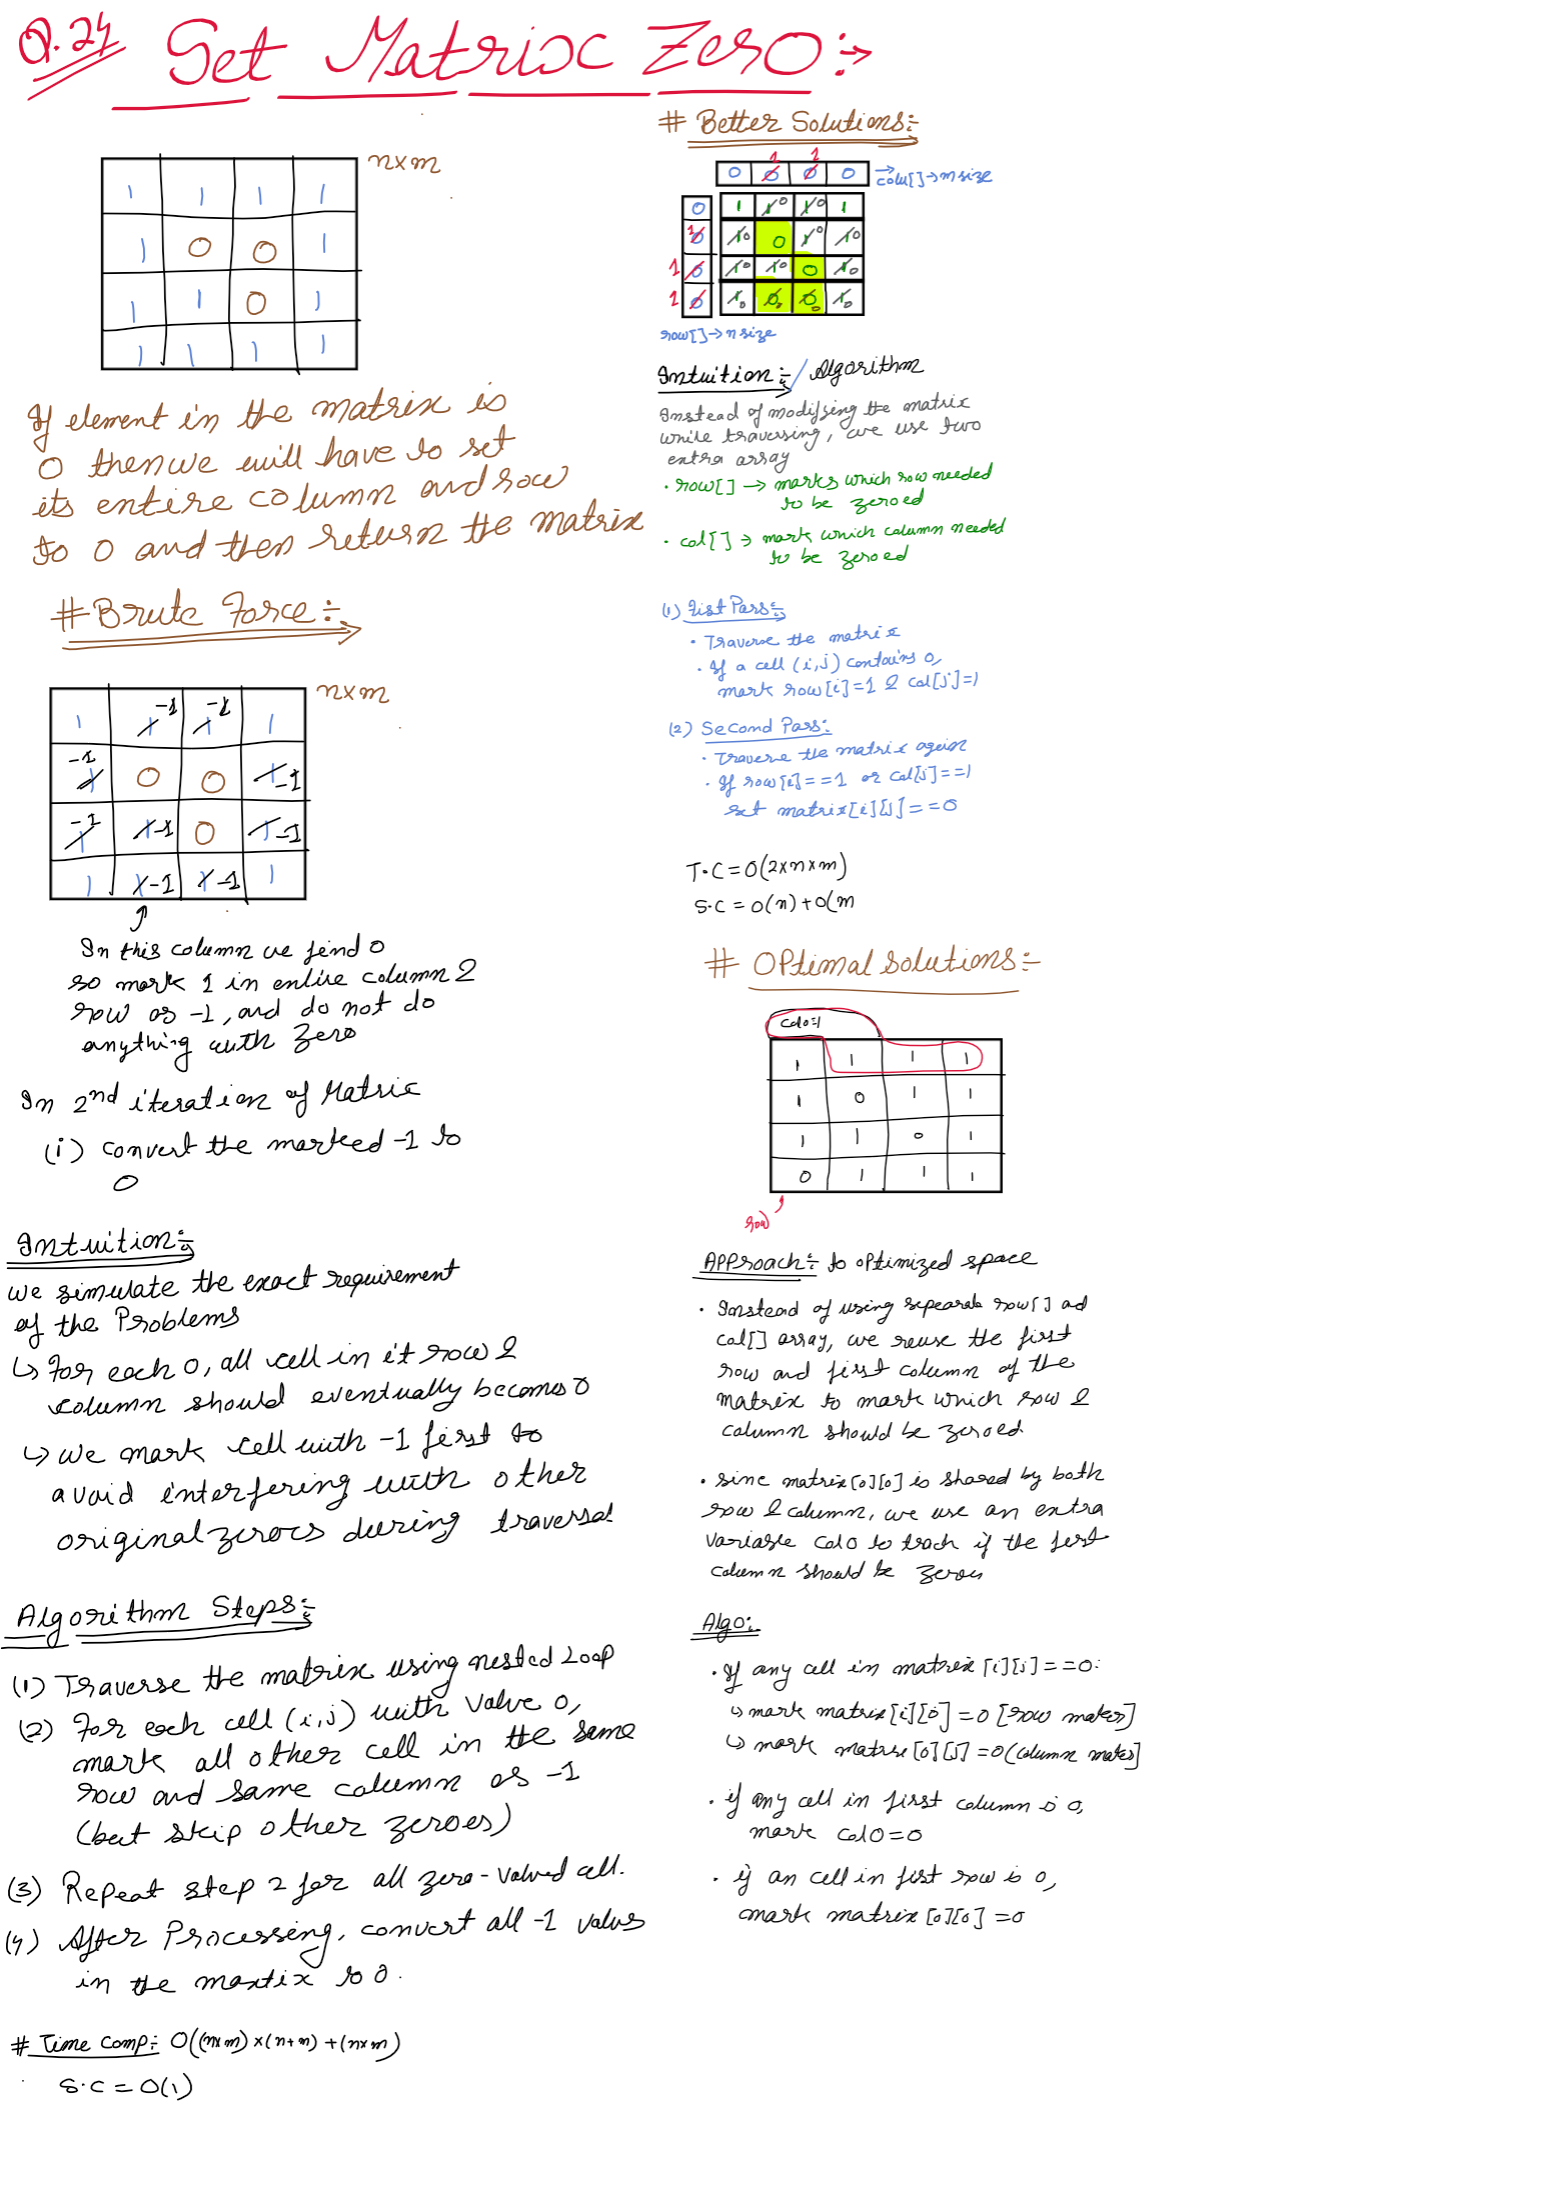 Q.24 Set Matrix Zero:→
n×m
1 1 1 1
1 0 0 1
1 1 0 1
1 1 1 1
If element in the matrix is
0 then we will have to set
its entire column and row
to 0 and then return the matrix
# Brute Force:-
n×m
1 1 -1 1 -1 1
-1 1 0 0 1 -1
-1 1 1 -1 0 1 -1
1 1 -1 1 -1 1
In this column we find 0
so mark 1 in entire column &
row as -1, and do not do
anything with zero
In 2nd iteration of Matrix
(i) convert the marked -1 to
0
Intuition:-
we simulate the exact requirement
of the Problems
↳ For each 0, all cell in it row &
column should eventually becomes 0
↳ we mark cell with -1 first to
avoid interfering with other
original zeroes during traversal
Algorithm Steps:-
(1) Traverse the matrix using nested Loop
(2) For each cell (i,j) with value 0,
mark all other cell in the same
row and same column as -1
(but skip other zeroes)
(3) Repeat step 2 for all zero-valued cell.
(4) After Processing, convert all -1 values
in the maxtix to 0.
# Time Comp:- O((n×m)×(n+m)+(n×m)
S.C = O(1)
# Better Solutions:-
1 1
0 0 0 0 colu[]→m size
0 1 1 0 1 0 1
1 0 1 0 0 1 0 1 0
1 0 1 0 1 0 0 1 0
1 0 1 0 0 0 0 0 1 0
row[]→n size
Intuition:-/Algorithm
Instead of modifying the matrix
while traversing, we use two
extra array
• row[] → marks which row needed
to be zeroed
• col[] → mark which column needed
to be zeroed
(1) Fist Pass:-
• Traverse the matrix
• If a cell (i,j) contains 0,
mark row[i]=1 & col[j]=1
(2) Second Pass:-
• Traverse the matrix again
• If row[i]==1 or col[j]==1
set matrix[i][j]==0
T.C = O(2×n×m)
S.C = O(n)+O(m
# OPtimal Solutions:-
col0=1
1 1 1 1
1 0 1 1
1 1 0 1
0 1 1 1
row
Approach:- to optimized space
• Instead of using sepearate row[] ad
col[] array, we reuse the first
row and first column of the
matrix to mark which row &
column should be zeroed
• Sinc matrix[0][0] is shared by both
row & column, we use an extra
variable col0 to track if the first
column should be zeroes
Algo:-
• If any cell in matrix [i][j]==0:
↳ mark matrix[i][0]=0 [row maker]
↳ mark matrix[0][j]=0(column maker]
• if any cell in first column is 0,
mark col0=0
• if an cell in fist row is 0,
mark matrix[0][0]=0